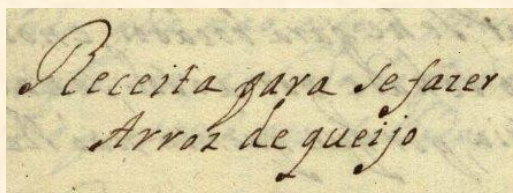 Receita para se fazer
Arroz de queijo